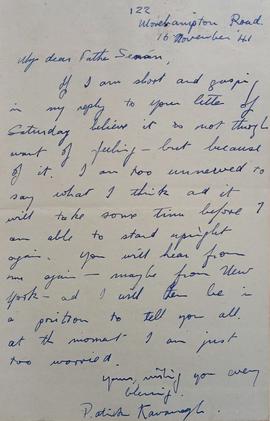 122
Morehampton Road
16 November '41
My dear Fathe Senan,
If I am short and gasping
in my reply to your letter of
Saturday believe it is not through
want of feeling – but because
of it. I am too unnerved to
say what I think ad it
will take some time before I
am able to stand upright
again. You will hear from
me again – maybe from New
York – ad I will then be in
a position to tell you all.
at the moment I am just
too worried.
Yours, wishing you every
blessing.
Patrick Kavanagh.